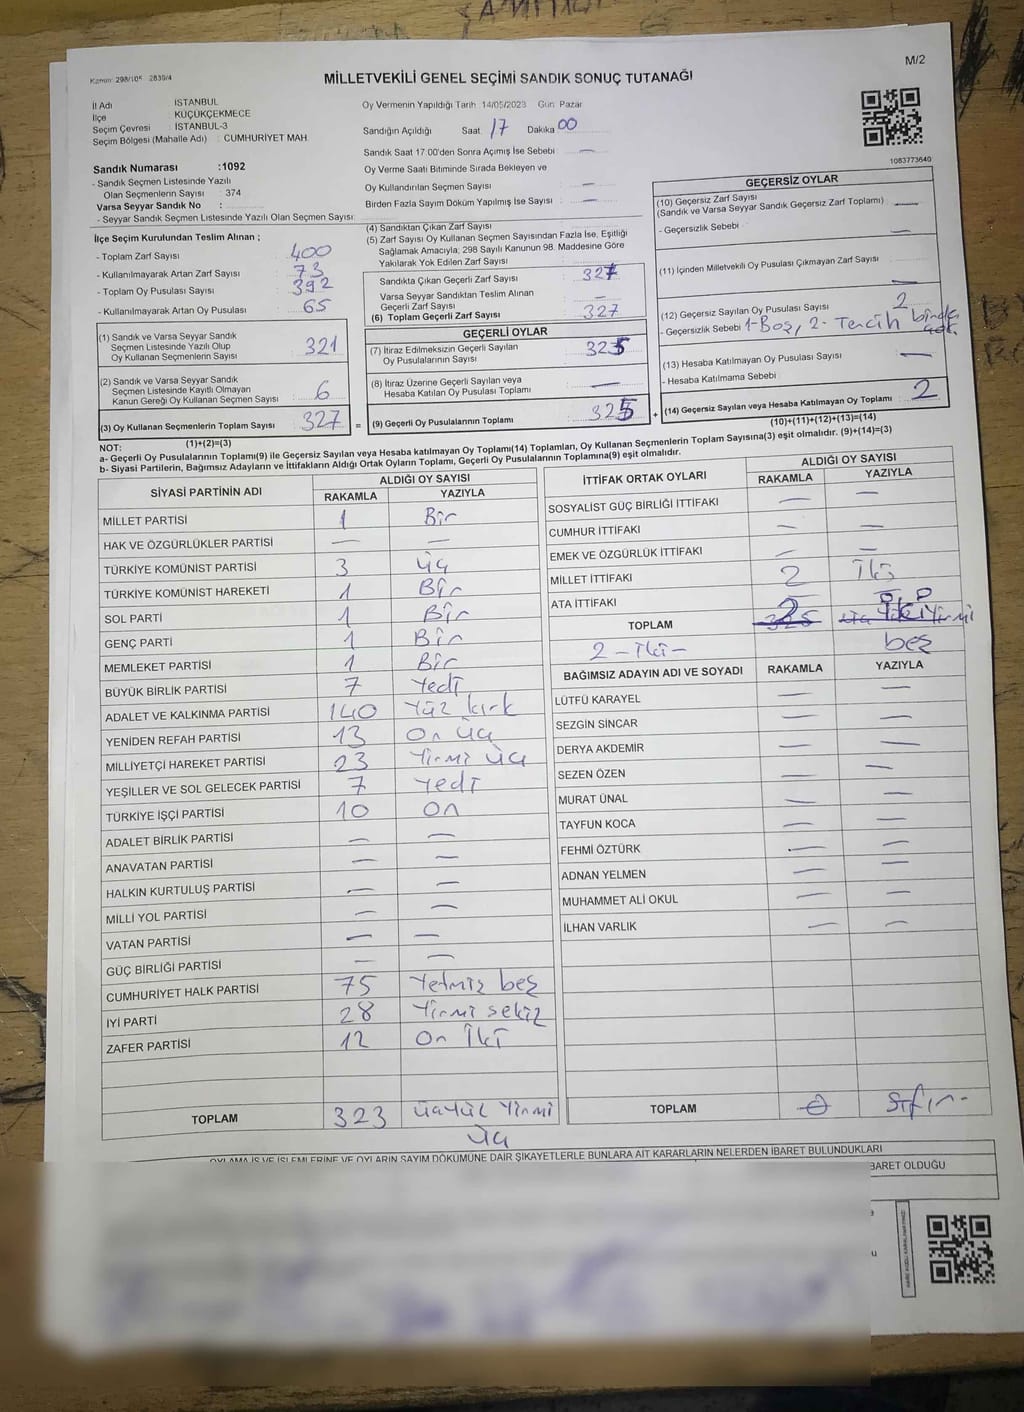 M/2
Kanun: 298/105 2839/4
MİLLETVEKİLİ GENEL SEÇİMİ SANDIK SONUÇ TUTANAĞI
İl Adı : İSTANBUL
İlçe : KÜÇÜKÇEKMECE
Seçim Çevresi : İSTANBUL-3
Seçim Bölgesi (Mahalle Adı) : CUMHURİYET MAH.
Oy Vermenin Yapıldığı Tarih 14/05/2023 Gün: Pazar
Sandığın Açıldığı Saat 17 Dakika 00
Sandık Saat 17.00'den Sonra Açımış İse Sebebi : —
Oy Verme Saati Bitiminde Sırada Bekleyen ve
Oy Kullandırılan Seçmen Sayısı : —
Birden Fazla Sayım Döküm Yapılmış İse Sayısı : —
1083773640
Sandık Numarası :1092
- Sandık Seçmen Listesinde Yazılı
Olan Seçmenlerin Sayısı : 374
Varsa Seyyar Sandık No :
- Seyyar Sandık Seçmen Listesinde Yazılı Olan Seçmen Sayısı:
İlçe Seçim Kurulundan Teslim Alınan ;
- Toplam Zarf Sayısı : 400
- Kullanılmayarak Artan Zarf Sayısı : 73
- Toplam Oy Pusulası Sayısı : 392
- Kullanılmayarak Artan Oy Pusulası : 65
(1) Sandık ve Varsa Seyyar Sandık
Seçmen Listesinde Yazılı Olup
Oy Kullanan Seçmenlerin Sayısı : 321
(2) Sandık ve Varsa Seyyar Sandık
Seçmen Listesinde Kayıtlı Olmayan
Kanun Gereği Oy Kullanan Seçmen Sayısı : 6
(3) Oy Kullanan Seçmenlerin Toplam Sayısı : 327 =
(1)+(2)=(3)
(4) Sandıktan Çıkan Zarf Sayısı :
(5) Zarf Sayısı Oy Kullanan Seçmen Sayısından Fazla İse, Eşitliği
Sağlamak Amacıyla; 298 Sayılı Kanunun 98. Maddesine Göre
Yakılarak Yok Edilen Zarf Sayısı :
Sandıkta Çıkan Geçerli Zarf Sayısı : 327
Varsa Seyyar Sandıktan Teslim Alınan
Geçerli Zarf Sayısı : —
(6) Toplam Geçerli Zarf Sayısı : 327
GEÇERLİ OYLAR
(7) İtiraz Edilmeksizin Geçerli Sayılan
Oy Pusulalarının Sayısı : 325
(8) İtiraz Üzerine Geçerli Sayılan veya
Hesaba Katılan Oy Pusulası Toplamı : —
(9) Geçerli Oy Pusulalarının Toplamı : 325 +
GEÇERSİZ OYLAR
(10) Geçersiz Zarf Sayısı
(Sandık ve Varsa Seyyar Sandık Geçersiz Zarf Toplamı) : —
- Geçersizlik Sebebi : —
(11) İçinden Milletvekili Oy Pusulası Çıkmayan Zarf Sayısı : —
(12) Geçersiz Sayılan Oy Pusulası Sayısı : 2
- Geçersizlik Sebebi : 1-Boş, 2- Tercih birden
(13) Hesaba Katılmayan Oy Pusulası Sayısı : —
- Hesaba Katılmama Sebebi :
(14) Geçersiz Sayılan veya Hesaba Katılmayan Oy Toplamı : 2
(10)+(11)+(12)+(13)=(14)
NOT:
a- Geçerli Oy Pusulalarının Toplamı(9) ile Geçersiz Sayılan veya Hesaba katılmayan Oy Toplamı(14) Toplamları, Oy Kullanan Seçmenlerin Toplam Sayısına(3) eşit olmalıdır. (9)+(14)=(3)
b- Siyasi Partilerin, Bağımsız Adayların ve İttifakların Aldığı Ortak Oyların Toplamı, Geçerli Oy Pusulalarının Toplamına(9) eşit olmalıdır.
SİYASİ PARTİNİN ADI ALDIĞI OY SAYISI
RAKAMLA YAZIYLA
MİLLET PARTİSİ 1 Bir
HAK VE ÖZGÜRLÜKLER PARTİSİ — —
TÜRKİYE KOMÜNİST PARTİSİ 3 Üç
TÜRKİYE KOMÜNİST HAREKETİ 1 Bir
SOL PARTİ 1 Bir
GENÇ PARTİ 1 Bir
MEMLEKET PARTİSİ 1 Bir
BÜYÜK BİRLİK PARTİSİ 7 Yedi
ADALET VE KALKINMA PARTİSİ 140 Yüz kırk
YENİDEN REFAH PARTİSİ 13 On üç
MİLLİYETÇİ HAREKET PARTİSİ 23 Yirmi üç
YEŞİLLER VE SOL GELECEK PARTİSİ 7 Yedi
TÜRKİYE İŞÇİ PARTİSİ 10 On
ADALET BİRLİK PARTİSİ — —
ANAVATAN PARTİSİ — —
HALKIN KURTULUŞ PARTİSİ — —
MİLLİ YOL PARTİSİ — —
VATAN PARTİSİ — —
GÜÇ BİRLİĞİ PARTİSİ — —
CUMHURİYET HALK PARTİSİ 75 Yetmiş beş
İYİ PARTİ 28 Yirmi sekiz
ZAFER PARTİSİ 12 On İki
TOPLAM 323 üçyüz Yirmi
üç
İTTİFAK ORTAK OYLARI ALDIĞI OY SAYISI
RAKAMLA YAZIYLA
SOSYALİST GÜÇ BİRLİĞİ İTTİFAKI — —
CUMHUR İTTİFAKI — —
EMEK VE ÖZGÜRLÜK İTTİFAKI — —
MİLLET İTTİFAKI 2 İki
ATA İTTİFAKI — —
TOPLAM 2 325 iki Yirmi
2 - İki - beş
BAĞIMSIZ ADAYIN ADI VE SOYADI RAKAMLA YAZIYLA
LÜTFÜ KARAYEL — —
SEZGİN SİNCAR — —
DERYA AKDEMİR — —
SEZEN ÖZEN — —
MURAT ÜNAL — —
TAYFUN KOCA — —
FEHMİ ÖZTÜRK — —
ADNAN YELMEN — —
MUHAMMET ALİ OKUL — —
İLHAN VARLIK — —
TOPLAM 0 Sıfır-
OYLAMA İŞ VE İŞLEMLERİNE VE OYLARIN SAYIM DÖKÜMÜNE DAİR ŞİKAYETLERLE BUNLARA AİT KARARLARIN NELERDEN İBARET BULUNDUKLARI
BARET OLDUĞU